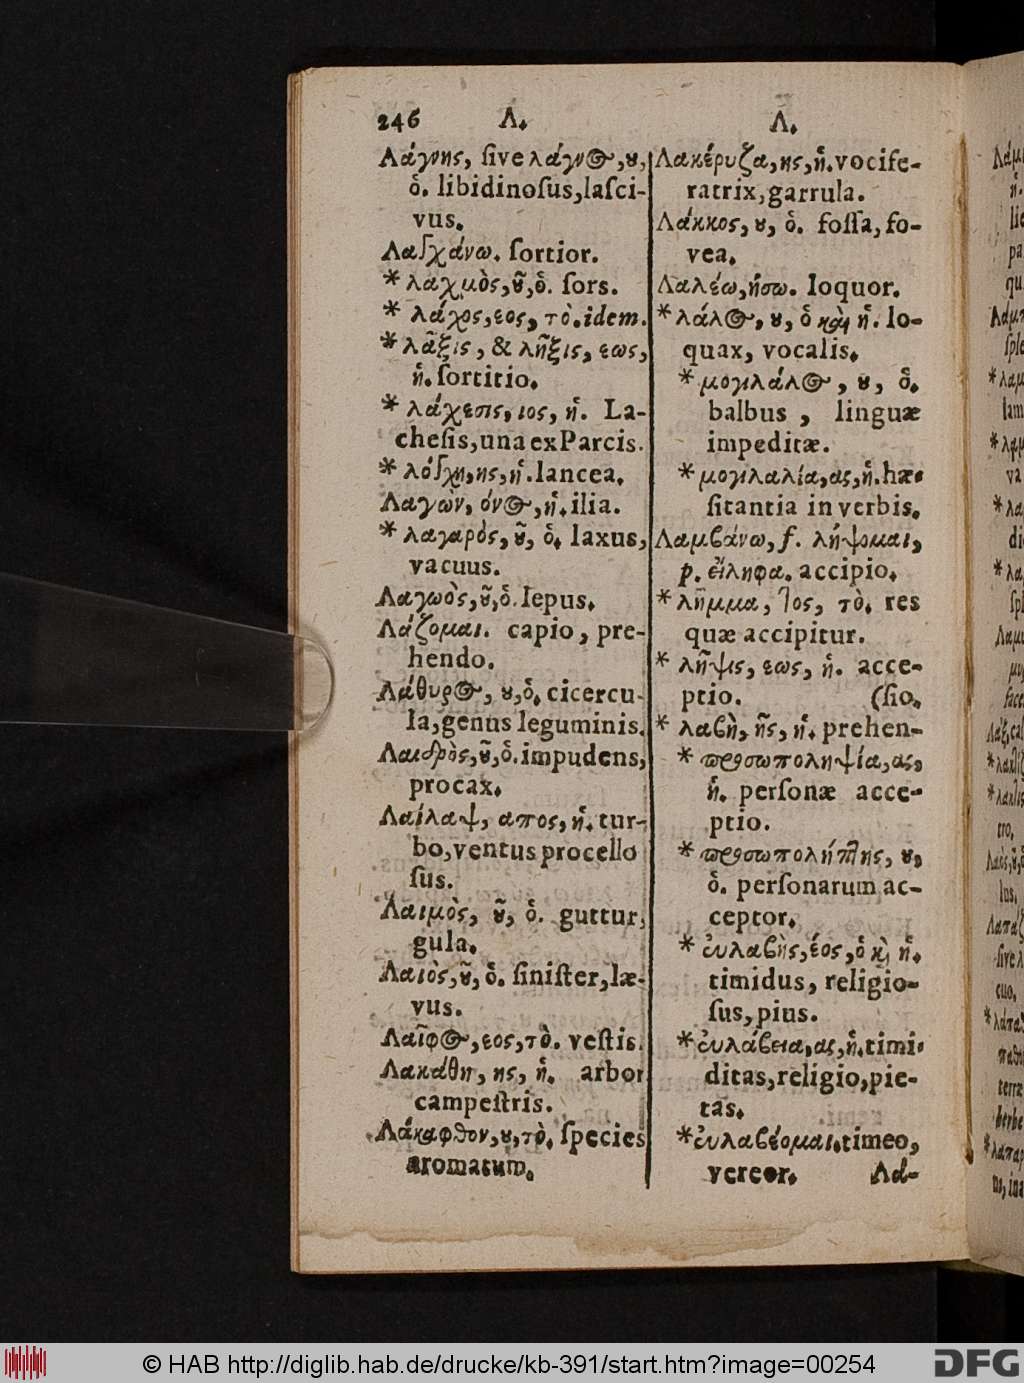 246 Λ. Λ.
Λάγνης, ſive λάγνος, ου,
ὁ. libidinoſus, laſci-
vus.
Λαγχάνω. ſortior.
* λαχμὸς, οῦ, ὁ. ſors.
* λάχος, εος, τὸ. idem.
* λᾶξις, & λῆξις, εως,
ἡ. ſortitio.
* λάχεσις, ιος, ἡ. La-
cheſis, una ex Parcis.
* λόγχη, ης, ἡ. lancea.
Λαγὼν, όνος, ἡ. ilia.
* λαγαρὸς, οῦ, ὁ. laxus,
vacuus.
Λαγωὸς, οῦ, ὁ. lepus.
Λάζομαι. capio, pre-
hendo.
Λάθυρος, ου, ὁ. cicercu-
la, genus leguminis.
Λαιδρὸς, οῦ, ὁ. impudens,
procax.
Λαίλαψ, απος, ἡ. tur-
bo, ventus procello
ſus.
Λαιμὸς, οῦ, ὁ. guttur,
gula.
Λαιὸς, οῦ, ὁ. ſiniſter, læ-
vus.
Λαῖφος, εος, τὸ. veſtis.
Λακάθη, ης, ἡ. arbor
campeſtris.
Λάκαφθον, ου, τὸ. ſpecies
aromatum.
Λακέρυζα, ης, ἡ. vocife-
ratrix, garrula.
Λάκκος, ου, ὁ. foſſa, fo-
vea.
Λαλέω, ήσω. loquor.
* λάλος, ου, ὁ καὶ ἡ. lo-
quax, vocalis.
* μογιλάλος, ου, ὁ.
balbus, linguæ
impeditæ.
* μογιλαλία, ας, ἡ. hæ-
ſitantia in verbis.
Λαμβάνω, f. λήψομαι,
p. εἴληφα. accipio.
* λῆμμα, τος, τὸ. res
quæ accipitur.
* λῆψις, εως, ἡ. acce-
ptio. (ſio.
* λαβὴ, ῆς, ἡ. prehen-
* προσωποληψία, ας,
ἡ. perſonæ acce-
ptio.
* προσωπολήπτης, ου,
ὁ. perſonarum ac-
ceptor.
* εὐλαβὴς, έος, ὁ καὶ ἡ.
timidus, religio-
ſus, pius.
* εὐλάβεια, ας, ἡ. timi-
ditas, religio, pie-
tas.
* εὐλαβέομαι. timeo,
vereor. Λά-
© HAB http://diglib.hab.de/drucke/kb-391/start.htm?image=00254
DFG